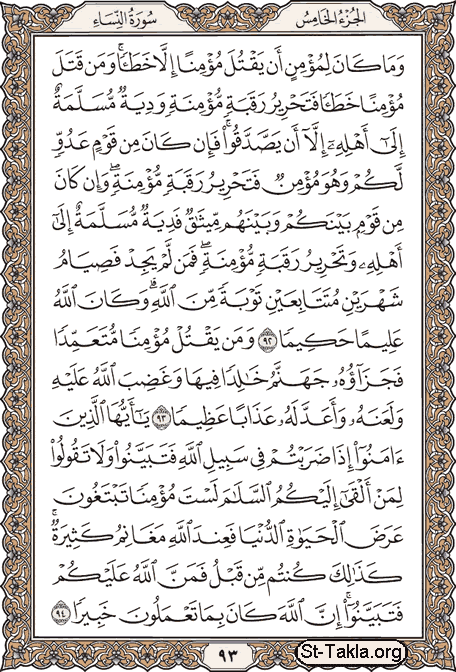 الجزء الخامس
سورة النساء
وَمَا كَانَ لِمُؤْمِنٍ أَن يَقْتُلَ مُؤْمِنًا إِلَّا خَطَـًٔا ۚ وَمَن قَتَلَ
مُؤْمِنًا خَطَـًٔا فَتَحْرِيرُ رَقَبَةٍ مُّؤْمِنَةٍ وَدِيَةٌ مُّسَلَّمَةٌ
إِلَىٰٓ أَهْلِهِۦٓ إِلَّآ أَن يَصَّدَّقُوا۟ ۚ فَإِن كَانَ مِن قَوْمٍ عَدُوٍّ
لَّكُمْ وَهُوَ مُؤْمِنٌ فَتَحْرِيرُ رَقَبَةٍ مُّؤْمِنَةٍ ۖ وَإِن كَانَ
مِن قَوْمٍۭ بَيْنَكُمْ وَبَيْنَهُم مِّيثَـٰقٌ فَدِيَةٌ مُّسَلَّمَةٌ إِلَىٰٓ
أَهْلِهِۦ وَتَحْرِيرُ رَقَبَةٍ مُّؤْمِنَةٍ ۖ فَمَن لَّمْ يَجِدْ فَصِيَامُ
شَهْرَيْنِ مُتَتَابِعَيْنِ تَوْبَةً مِّنَ ٱللَّهِ ۗ وَكَانَ ٱللَّهُ
عَلِيمًا حَكِيمًا ٩٢ وَمَن يَقْتُلْ مُؤْمِنًا مُّتَعَمِّدًا
فَجَزَآؤُهُۥ جَهَنَّمُ خَـٰلِدًا فِيهَا وَغَضِبَ ٱللَّهُ عَلَيْهِ
وَلَعَنَهُۥ وَأَعَدَّ لَهُۥ عَذَابًا عَظِيمًا ٩٣ يَـٰٓأَيُّهَا ٱلَّذِينَ
ءَامَنُوٓا۟ إِذَا ضَرَبْتُمْ فِى سَبِيلِ ٱللَّهِ فَتَبَيَّنُوا۟ وَلَا تَقُولُوا۟
لِمَنْ أَلْقَىٰٓ إِلَيْكُمُ ٱلسَّلَـٰمَ لَسْتَ مُؤْمِنًا تَبْتَغُونَ
عَرَضَ ٱلْحَيَوٰةِ ٱلدُّنْيَا فَعِندَ ٱللَّهِ مَغَانِمُ كَثِيرَةٌ ۚ
كَذَٰلِكَ كُنتُم مِّن قَبْلُ فَمَنَّ ٱللَّهُ عَلَيْكُمْ
فَتَبَيَّنُوٓا۟ ۚ إِنَّ ٱللَّهَ كَانَ بِمَا تَعْمَلُونَ خَبِيرًا ٩٤
٩٣
St-Takla.org